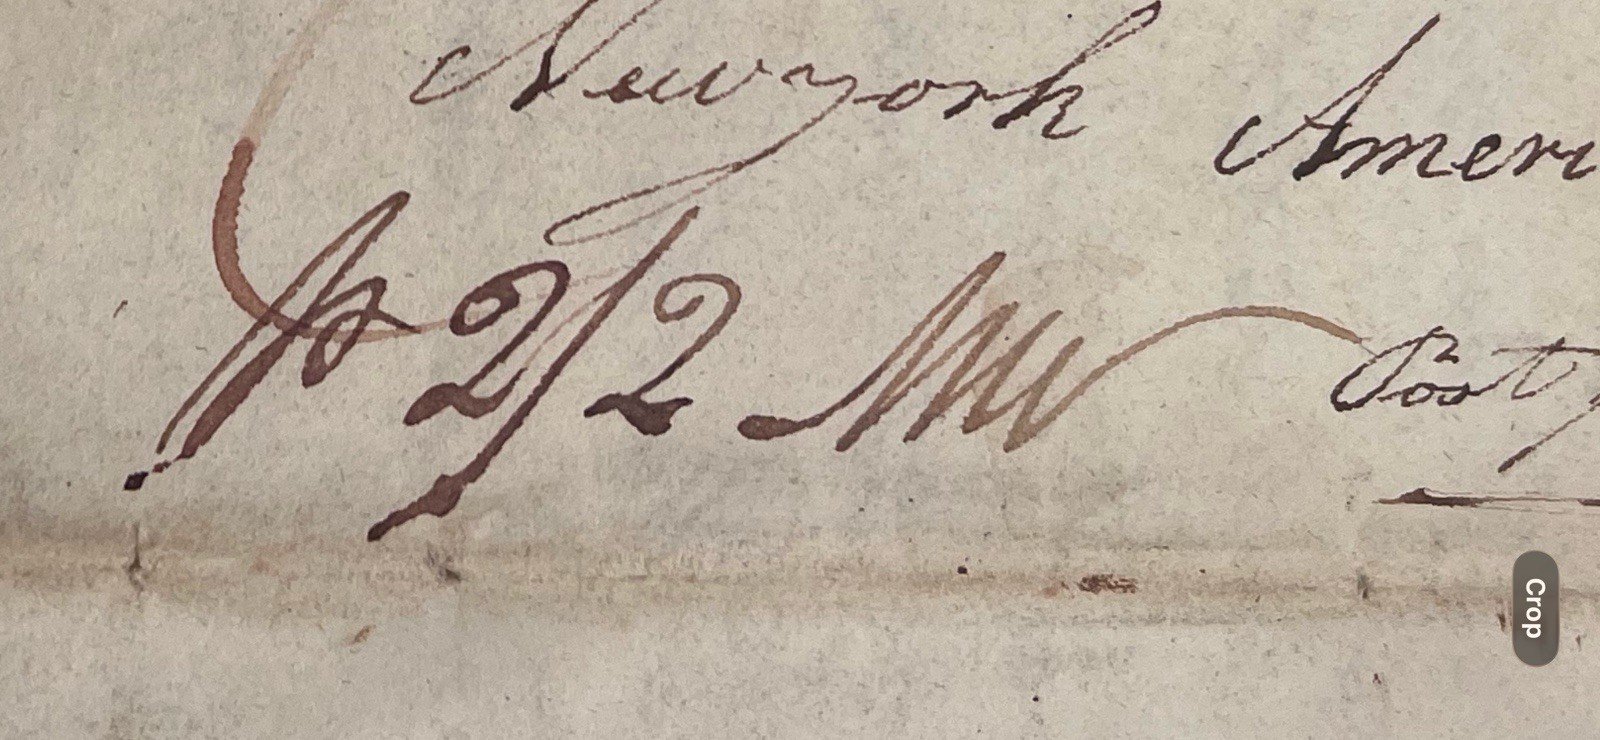 Newyork Ameri
P 2/2 Post
Crop